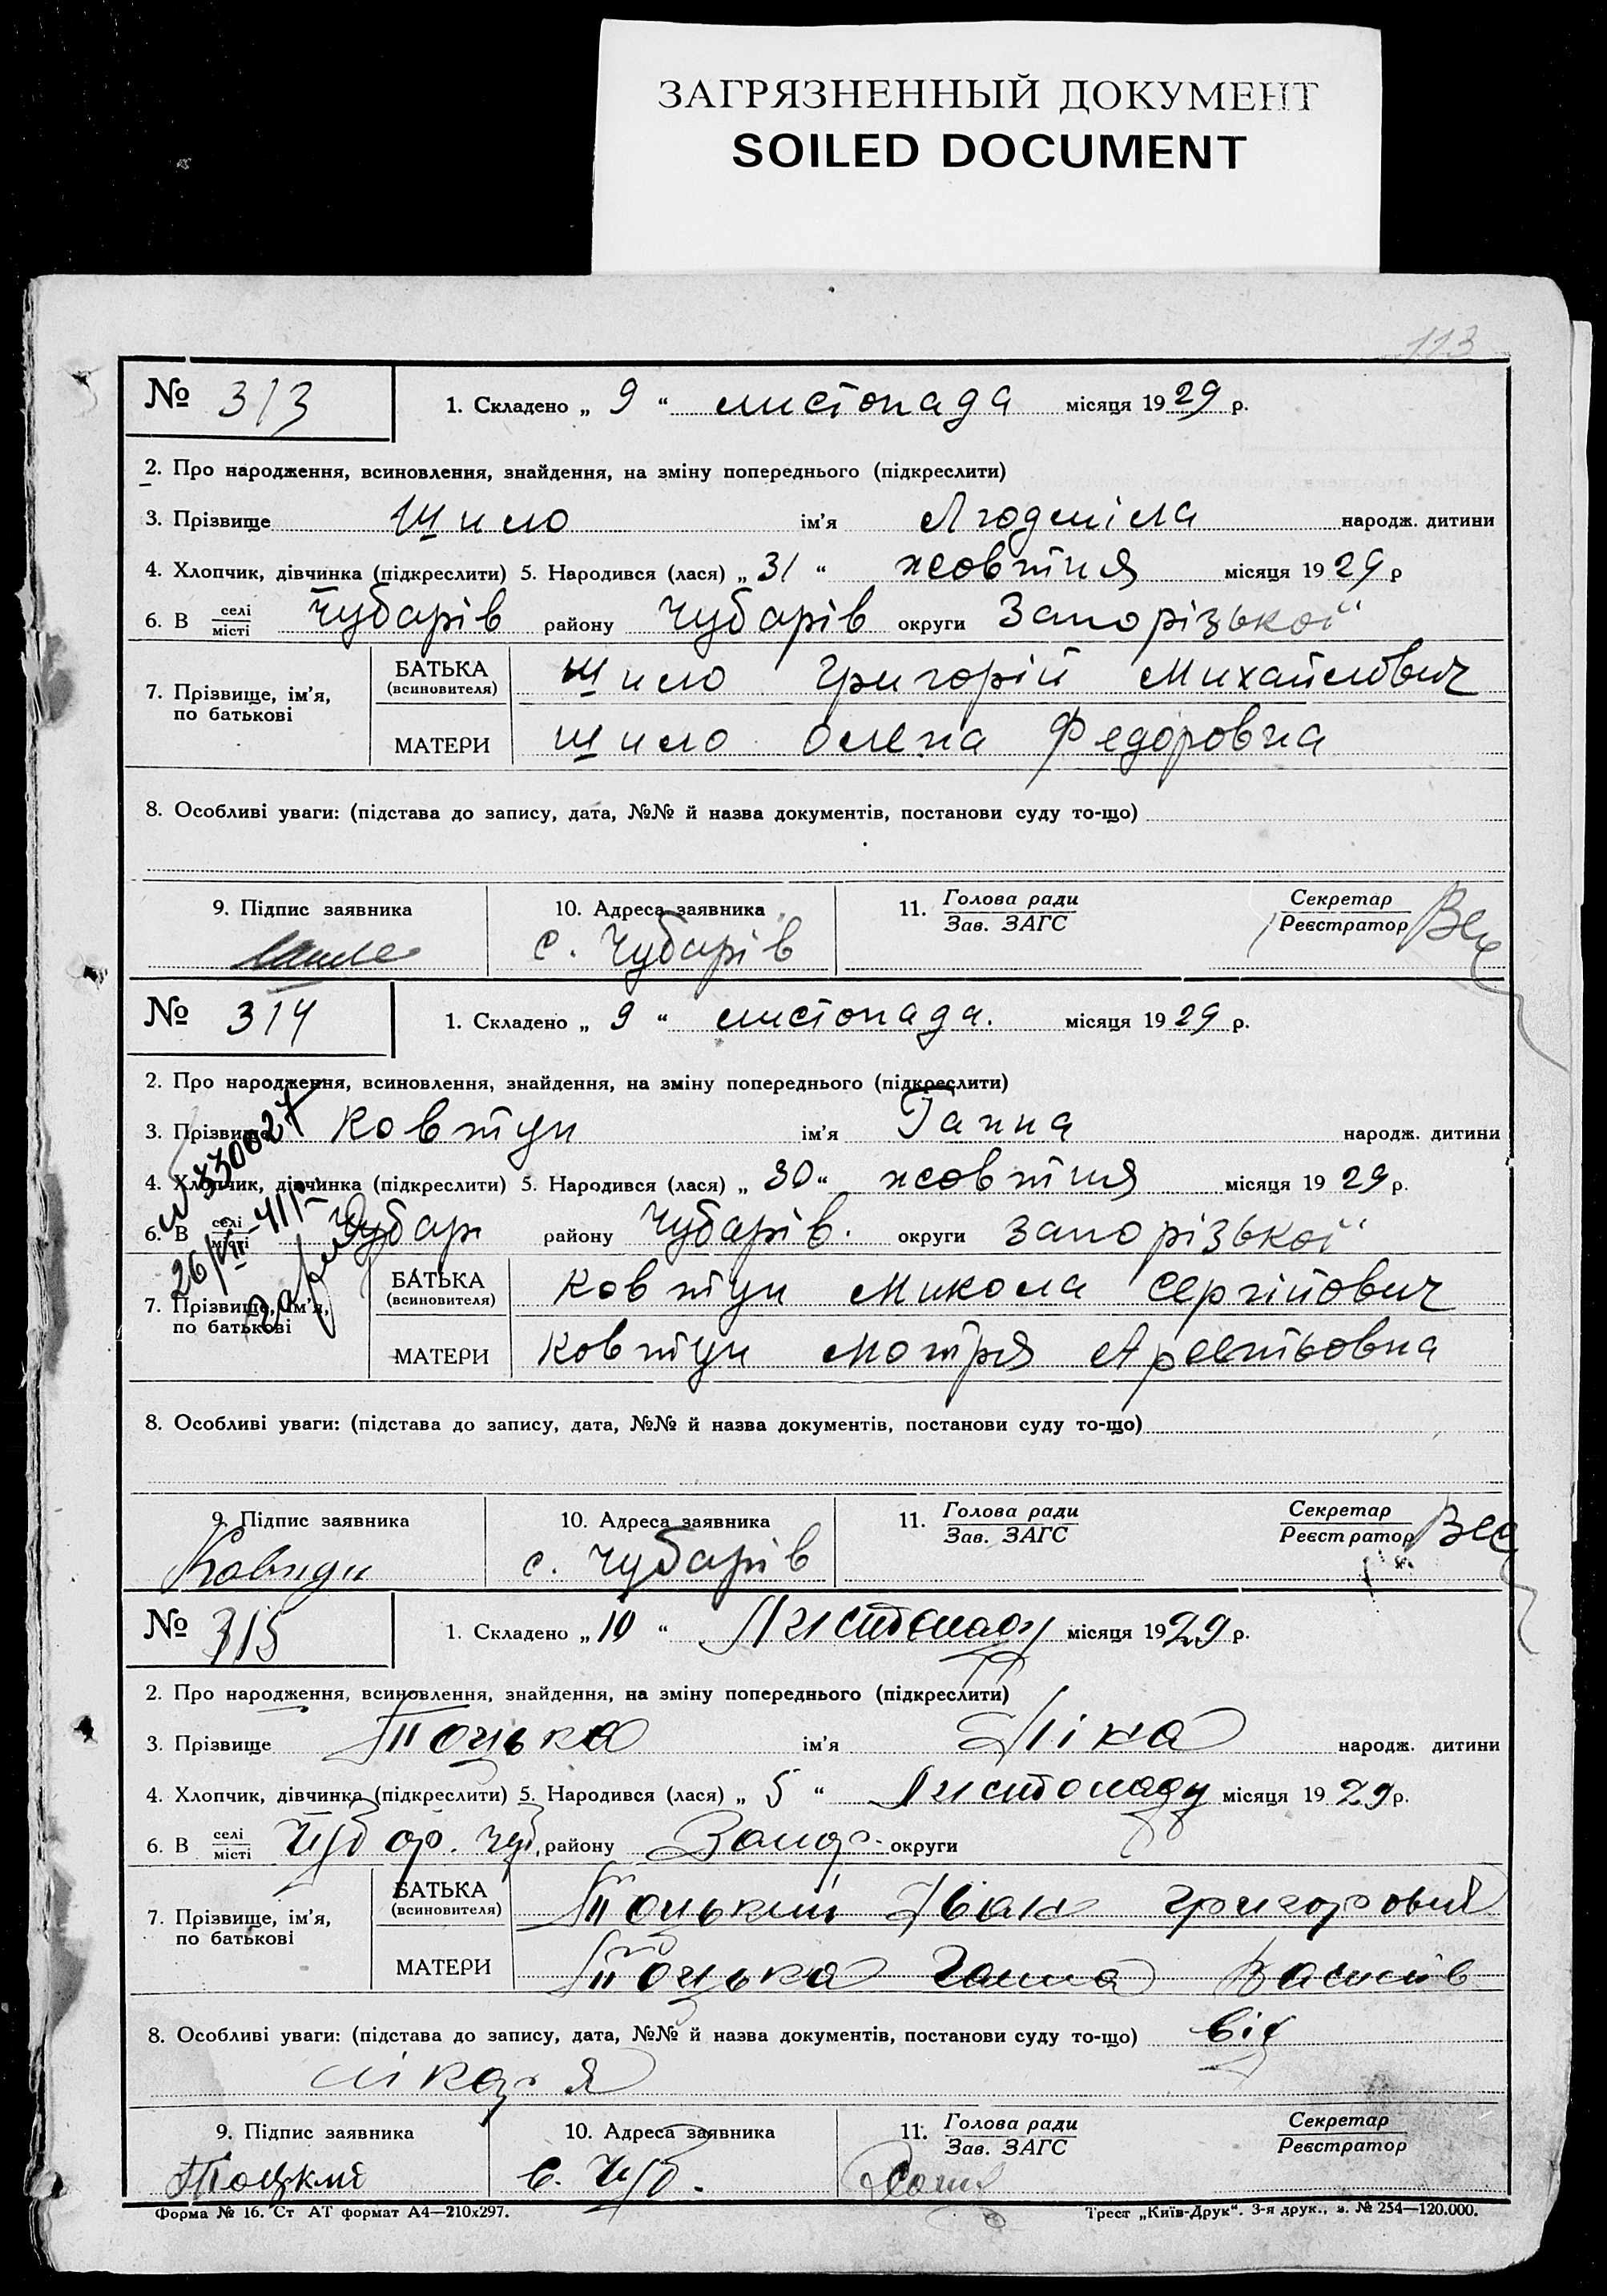 ЗАГРЯЗНЕННЫЙ ДОКУМЕНТ
SOILED DOCUMENT
113
№ 313 1. Складено „ 9 “ листопада місяця 1929 р.
2. Про народження, всиновлення, знайдення, на зміну попереднього (підкреслити)
3. Прізвище Шило ім’я Людміла народж. дитини
4. Хлопчик, дівчинка (підкреслити) 5. Народився (лася) „ 31 “ жовтня місяця 1929 р
6. В селі місті Чубарів району Чубарів округи Запорізької
7. Прізвище, ім’я, по батькові БАТЬКА (всиновителя) Шило Григорій Михайлович
МАТЕРИ Шило Олена Федоровна
8. Особливі уваги: (підстава до запису, дата, №№ й назва документів, постанови суду то-що)
9. Підпис заявника 10. Адреса заявника 11. Голова ради Зав. ЗАГС Секретар Реєстратор
с. Чубарів
№ 314 1. Складено „ 9 “ листопада. місяця 1929 р.
2. Про народження, всиновлення, знайдення, на зміну попереднього (підкреслити)
3. Прізвище Ковтун ім’я Ганна народж. дитини
4. Хлопчик, дівчинка (підкреслити) 5. Народився (лася) „ 30 “ жовтня місяця 1929 р.
6. В селі місті Чубар району Чубарів. округи Запорізької
7. Прізвище, ім’я, по батькові БАТЬКА (всиновителя) Ковтун Микола Сергійович
МАТЕРИ Ковтун Мотря
8. Особливі уваги: (підстава до запису, дата, №№ й назва документів, постанови суду то-що)
9. Підпис заявника 10. Адреса заявника 11. Голова ради Зав. ЗАГС Секретар Реєстратор
Ковтун с. Чубарів
№ 315 1. Складено „ 10 “ Листопаду місяця 1929 р.
2. Про народження, всиновлення, знайдення, на зміну попереднього (підкреслити)
3. Прізвище Тоцька ім’я Ніка народж. дитини
4. Хлопчик, дівчинка (підкреслити) 5. Народився (лася) „ 5 “ Листопаду місяця 1929 р.
6. В селі місті Чубар. Чуб. району Запор. округи
7. Прізвище, ім’я, по батькові БАТЬКА (всиновителя) Тоцький Іван Григорович
МАТЕРИ Тоцька Ганна Василів
8. Особливі уваги: (підстава до запису, дата, №№ й назва документів, постанови суду то-що) від
лікаря
9. Підпис заявника 10. Адреса заявника 11. Голова ради Зав. ЗАГС Секретар Реєстратор
Тоцкий с. Чуб.
Форма № 16. Ст АТ формат А4—210х297. Трест „Київ-Друк“. 3-я друк., з. № 254—120.000.